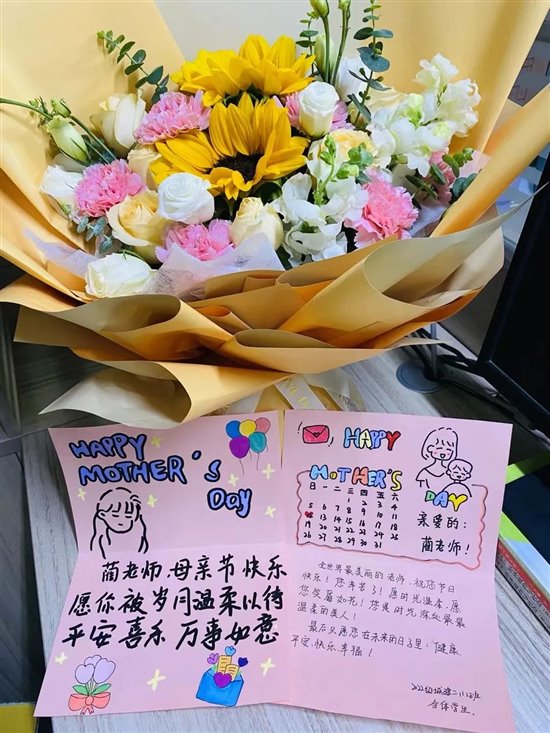 HAPPY
MOTHER'S
Day
蔺老师,母亲节快乐
愿你被岁月温柔以待
平安喜乐 万事如意
HAPPY
MOTHER'S
DAY
日 一 二 三 四 五 六
1 2 3 4
5 6 7 8 9 10 11
12 13 14 15 16 17 18
19 20 21 22 23 24 25
26 27 28 29 30 31
亲爱的:
蔺老师!
世界最美丽的老师,祝您节日
快乐!您辛苦了!愿时光温柔,愿
您笑靥如花!您是时光深处最最
温柔的美人!
最后又愿您在未来的日子里:健康,
平安,快乐,幸福!
全体学生